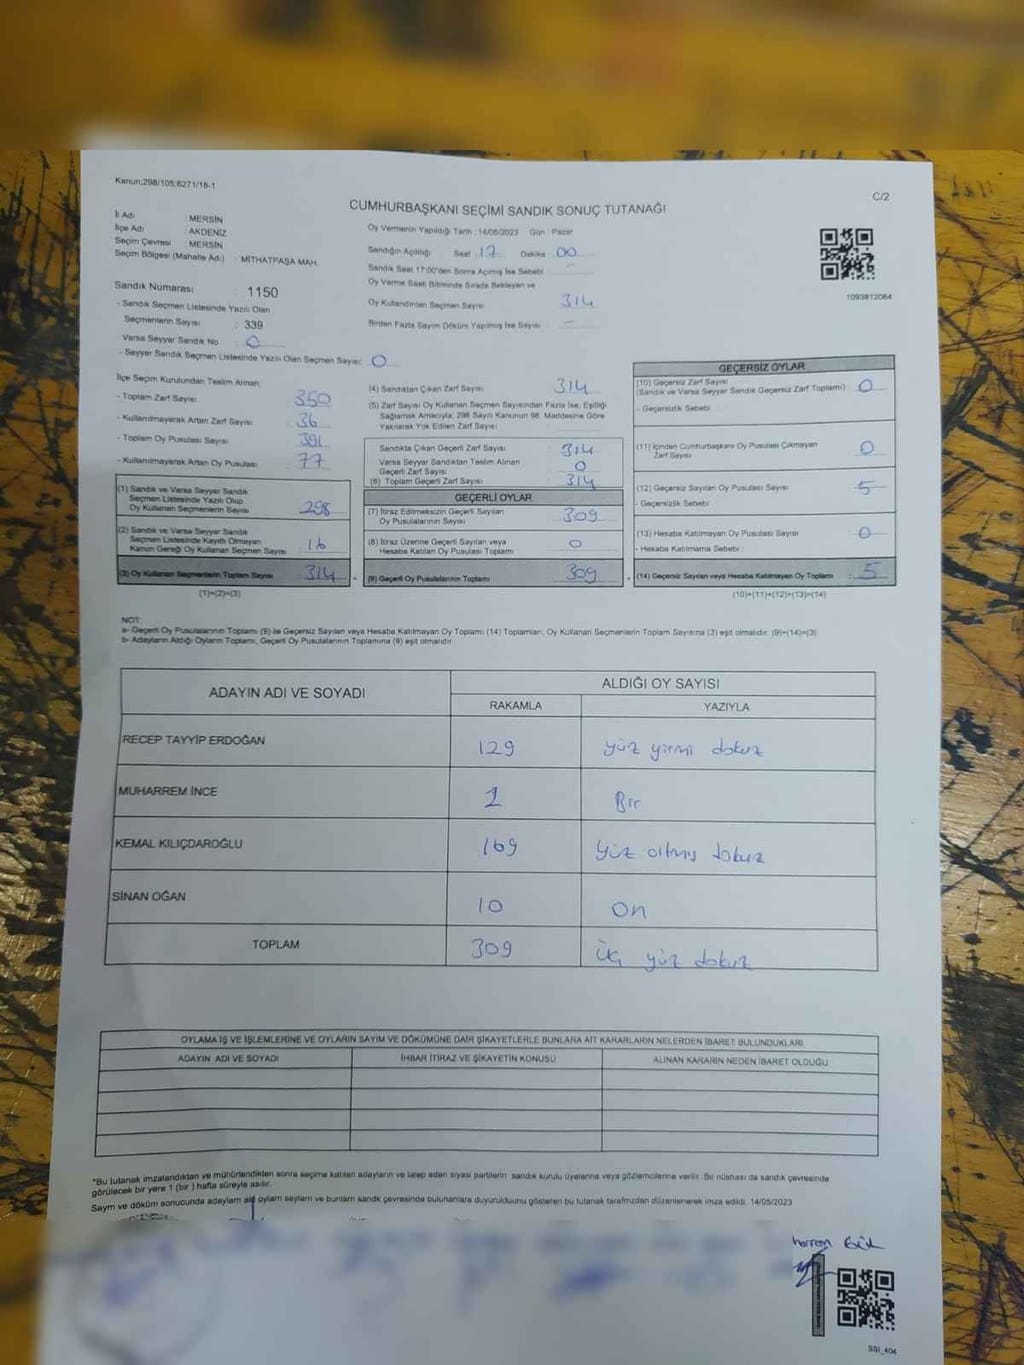 Kanun:298/105;6271/18-1
C/2
CUMHURBAŞKANI SEÇİMİ SANDIK SONUÇ TUTANAĞI
İl Adı : MERSİN
İlçe Adı : AKDENİZ
Seçim Çevresi : MERSİN
Seçim Bölgesi (Mahalle Adı) : MİTHATPAŞA MAH.
Sandık Numarası : 1150
- Sandık Seçmen Listesinde Yazılı Olan
Seçmenlerin Sayısı : 339
Varsa Seyyar Sandık No : 0
- Seyyar Sandık Seçmen Listesinde Yazılı Olan Seçmen Sayısı: 0
Oy Vermenin Yapıldığı Tarih : 14/05/2023 Gün : Pazar
Sandığın Açıldığı Saat 17 Dakika 00
Sandık Saat 17:00'den Sonra Açılmış İse Sebebi : -
Oy Verme Saati Bitiminde Sırada Bekleyen ve
Oy Kullandırılan Seçmen Sayısı 314
Birden Fazla Sayım Döküm Yapılmış İse Sayısı : -
1093812064
İlçe Seçim Kurulundan Teslim Alınan:
- Toplam Zarf Sayısı : 350
- Kullanılmayarak Artan Zarf Sayısı : 36
- Toplam Oy Pusulası Sayısı : 391
- Kullanılmayarak Artan Oy Pusulası : 77
(1) Sandık ve Varsa Seyyar Sandık
Seçmen Listesinde Yazılı Olup
Oy Kullanan Seçmenlerin Sayısı : 298
(2) Sandık ve Varsa Seyyar Sandık
Seçmen Listesinde Kayıtlı Olmayan
Kanun Gereği Oy Kullanan Seçmen Sayısı : 16
(3) Oy Kullanan Seçmenlerin Toplam Sayısı : 314
(1)+(2)=(3)
(4) Sandıktan Çıkan Zarf Sayısı 314
(5) Zarf Sayısı Oy Kullanan Seçmen Sayısından Fazla İse; Eşitliği
Sağlamak Amacıyla, 298 Sayılı Kanunun 98. Maddesine Göre
Yakılarak Yok Edilen Zarf Sayısı :
Sandıkta Çıkan Geçerli Zarf Sayısı : 314
Varsa Seyyar Sandıktan Teslim Alınan
Geçerli Zarf Sayısı : 0
(6) Toplam Geçerli Zarf Sayısı : 314
GEÇERLİ OYLAR
(7) İtiraz Edilmeksizin Geçerli Sayılan
Oy Pusulalarının Sayısı : 309
(8) İtiraz Üzerine Geçerli Sayılan veya
Hesaba Katılan Oy Pusulası Toplamı : 0
(9) Geçerli Oy Pusulalarının Toplamı : 309
GEÇERSİZ OYLAR
(10) Geçersiz Zarf Sayısı
(Sandık ve Varsa Seyyar Sandık Geçersiz Zarf Toplamı) : 0
- Geçersizlik Sebebi
(11) İçinden Cumhurbaşkanı Oy Pusulası Çıkmayan
Zarf Sayısı : 0
(12) Geçersiz Sayılan Oy Pusulası Sayısı : 5
- Geçersizlik Sebebi
(13) Hesaba Katılmayan Oy Pusulası Sayısı : 0
- Hesaba Katılmama Sebebi
(14) Geçersiz Sayılan veya Hesaba Katılmayan Oy Toplamı : 5
(10)+(11)+(12)+(13)=(14)
NOT:
a- Geçerli Oy Pusulalarının Toplamı (9) ile Geçersiz Sayılan veya Hesaba Katılmayan Oy Toplamı (14) Toplamları, Oy Kullanan Seçmenlerin Toplam Sayısına (3) eşit olmalıdır. (9)+(14)=(3)
b- Adayların Aldığı Oyların Toplamı, Geçerli Oy Pusulalarının Toplamına (9) eşit olmalıdır
ADAYIN ADI VE SOYADI
ALDIĞI OY SAYISI
RAKAMLA YAZIYLA
RECEP TAYYİP ERDOĞAN 129 yüz yirmi dokuz
MUHARREM İNCE 1 Bir
KEMAL KILIÇDAROĞLU 169 yüz altmış dokuz
SİNAN OĞAN 10 on
TOPLAM 309 üç yüz dokuz
OYLAMA İŞ VE İŞLEMLERİNE VE OYLARIN SAYIM VE DÖKÜMÜNE DAİR ŞİKAYETLERLE BUNLARA AİT KARARLARIN NELERDEN İBARET BULUNDUKLARI
ADAYIN ADI VE SOYADI İHBAR İTİRAZ VE ŞİKAYETİN KONUSU ALINAN KARARIN NEDEN İBARET OLDUĞU
*Bu tutanak imzalandıktan ve mühürlendikten sonra seçime katılan adayların ve talep eden siyasi partilerin sandık kurulu üyelerine veya gözlemcilerine verilir. Bir nüshası da sandık çevresinde
görülecek bir yere 1 (bir) hafta süreyle asılır.
Sayım ve döküm sonucunda adayların aldığı oyların sayılarını ve bunların sandık çevresinde bulunanlara duyurulduğunu gösteren bu tutanak tarafımızdan düzenlenerek imza edildi. 14/05/2023
SSI_404